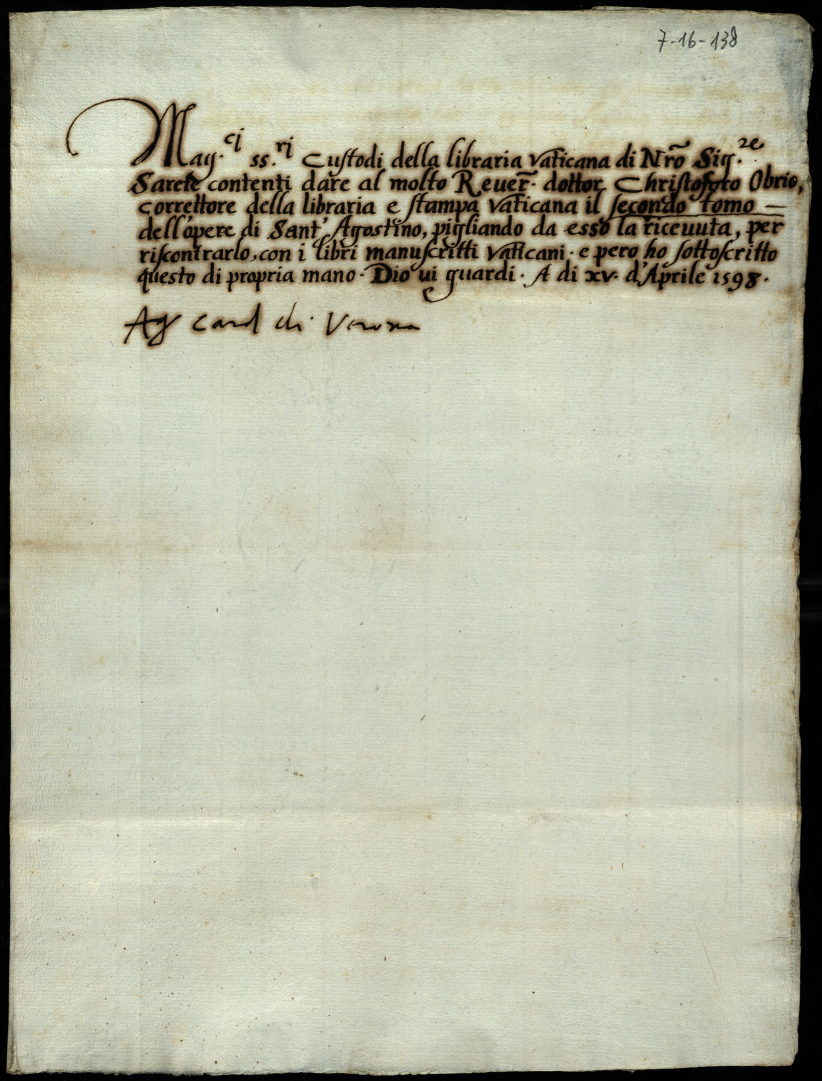 7-16-138
Mag.ci ss.ri Custodi della libraria vaticana di Nrõ Sig.re
Sarete contenti dare al molto Reuer̃. dottor Christoforo Obrio,
correttore della libraria e stampa vaticana il secondo tomo —
dell'opere di Sant' Agostino, pigliando da esso la riceuuta, per
riscontrarlo con i libri manuscritti vaticani. e pero ho sottoscritto
questo di propria mano. Dio ui guardi. A di xv. d'Aprile 1598.
Ag Card di Verona